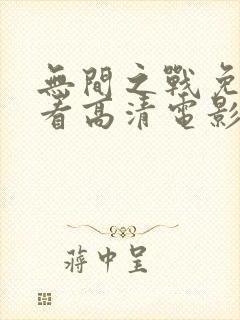 無間之戰免
看高清電影
蔣中呈